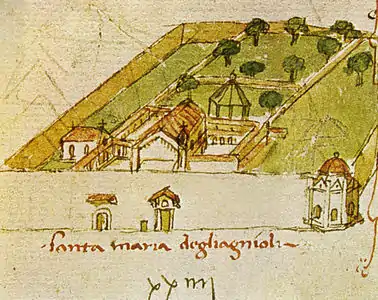 santa maria degliagnioli
xxiiii